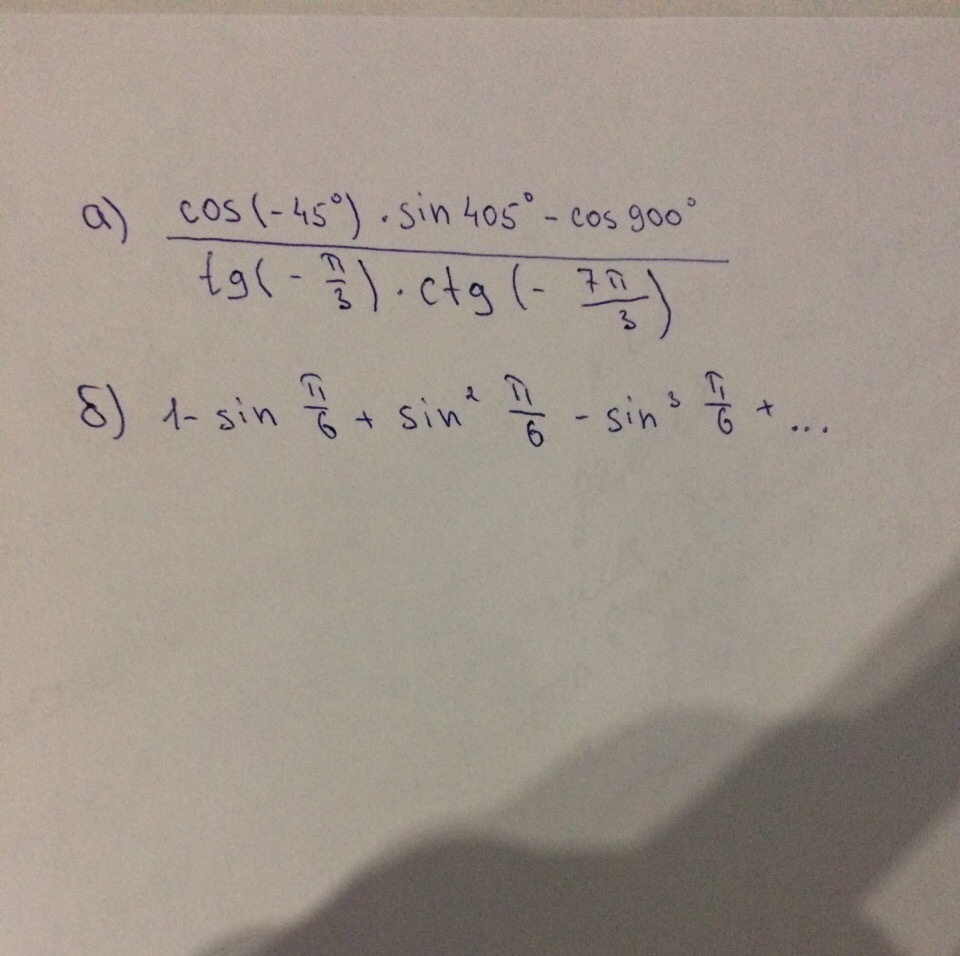 а) cos(-45°) · sin 405° - cos 900°
tg(- π/3) · ctg (- 7π/3)
б) 1 - sin π/6 + sin² π/6 - sin³ π/6 + ...